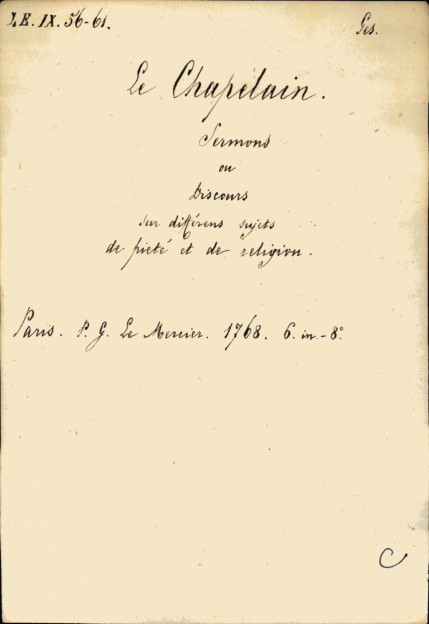 LE. IX. 56-61.
Ges.
Le Chapelain.
Sermons
ou
Discours
sur différens sujets
de pieté et de religion.
Paris. P. G. Le Mercier. 1768. 6. in-8°.
C